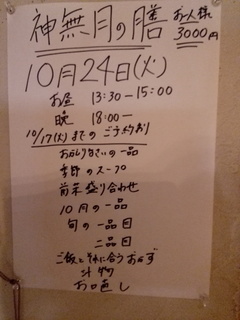 神無月の膳
お一人様
3000円
10月24日(火)
お昼 13:30-15:00
晩 18:00-
10/17(火)までのご予約
季節のスープ
前菜盛り合わせ
10月の一品
旬の一品目
二品目
ご飯とそれに合うおかず
汁物
お口直し